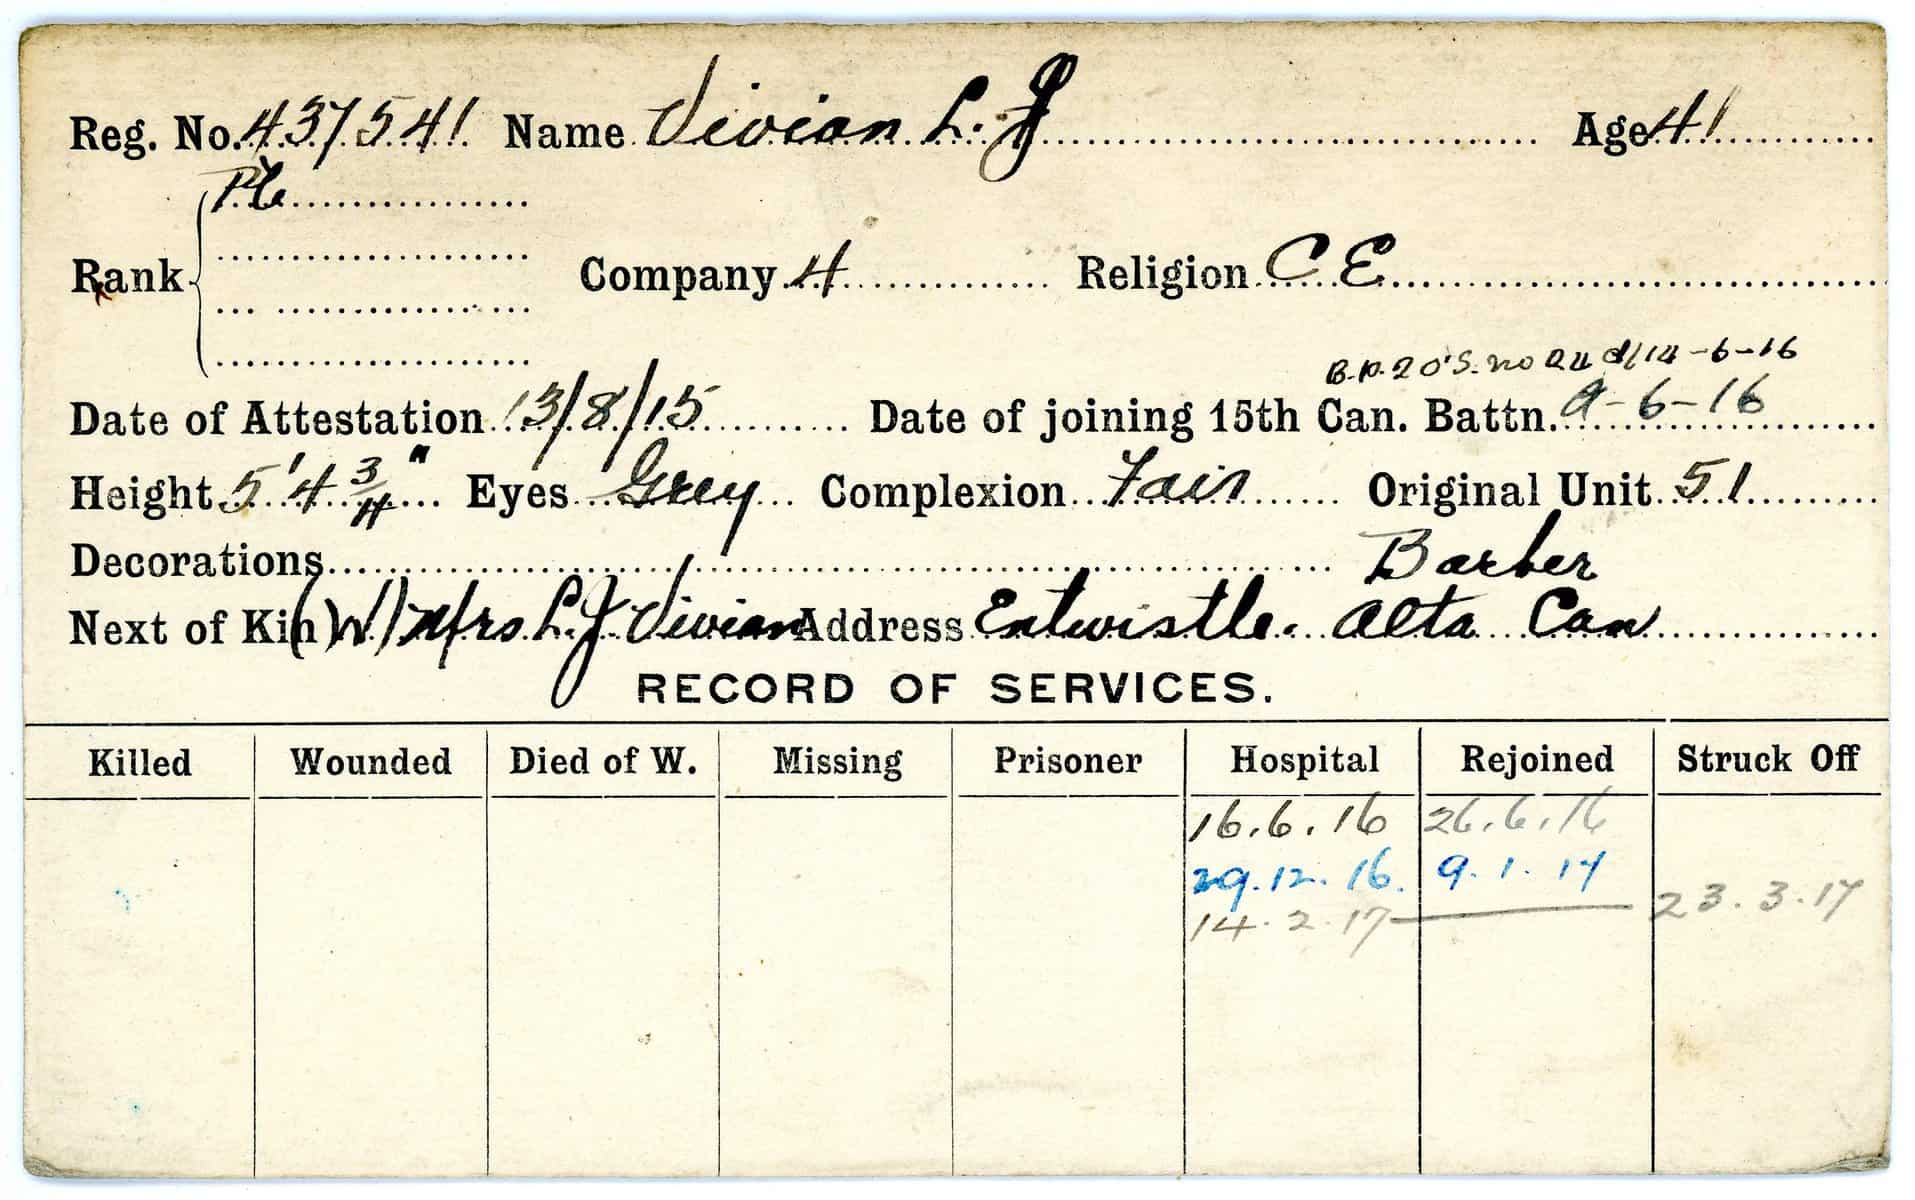 Reg. No. 437541 Name Vivian L. J Age 41
Pte
Rank Company 4 Religion C E
B.p. 20's. no QU d/14-6-16
Date of Attestation 13/8/15 Date of joining 15th Can. Battn. 9-6-16
Height 5' 4 3/4" Eyes Grey Complexion Fair Original Unit 51
Decorations Barber
Next of Kin (W) Mrs L. J. Vivian Address Entwistle. Alta Can
RECORD OF SERVICES.
Killed Wounded Died of W. Missing Prisoner Hospital Rejoined Struck Off
16.6.16 26.6.16
29.12.16. 9.1.17
14.2.17 — 23.3.17